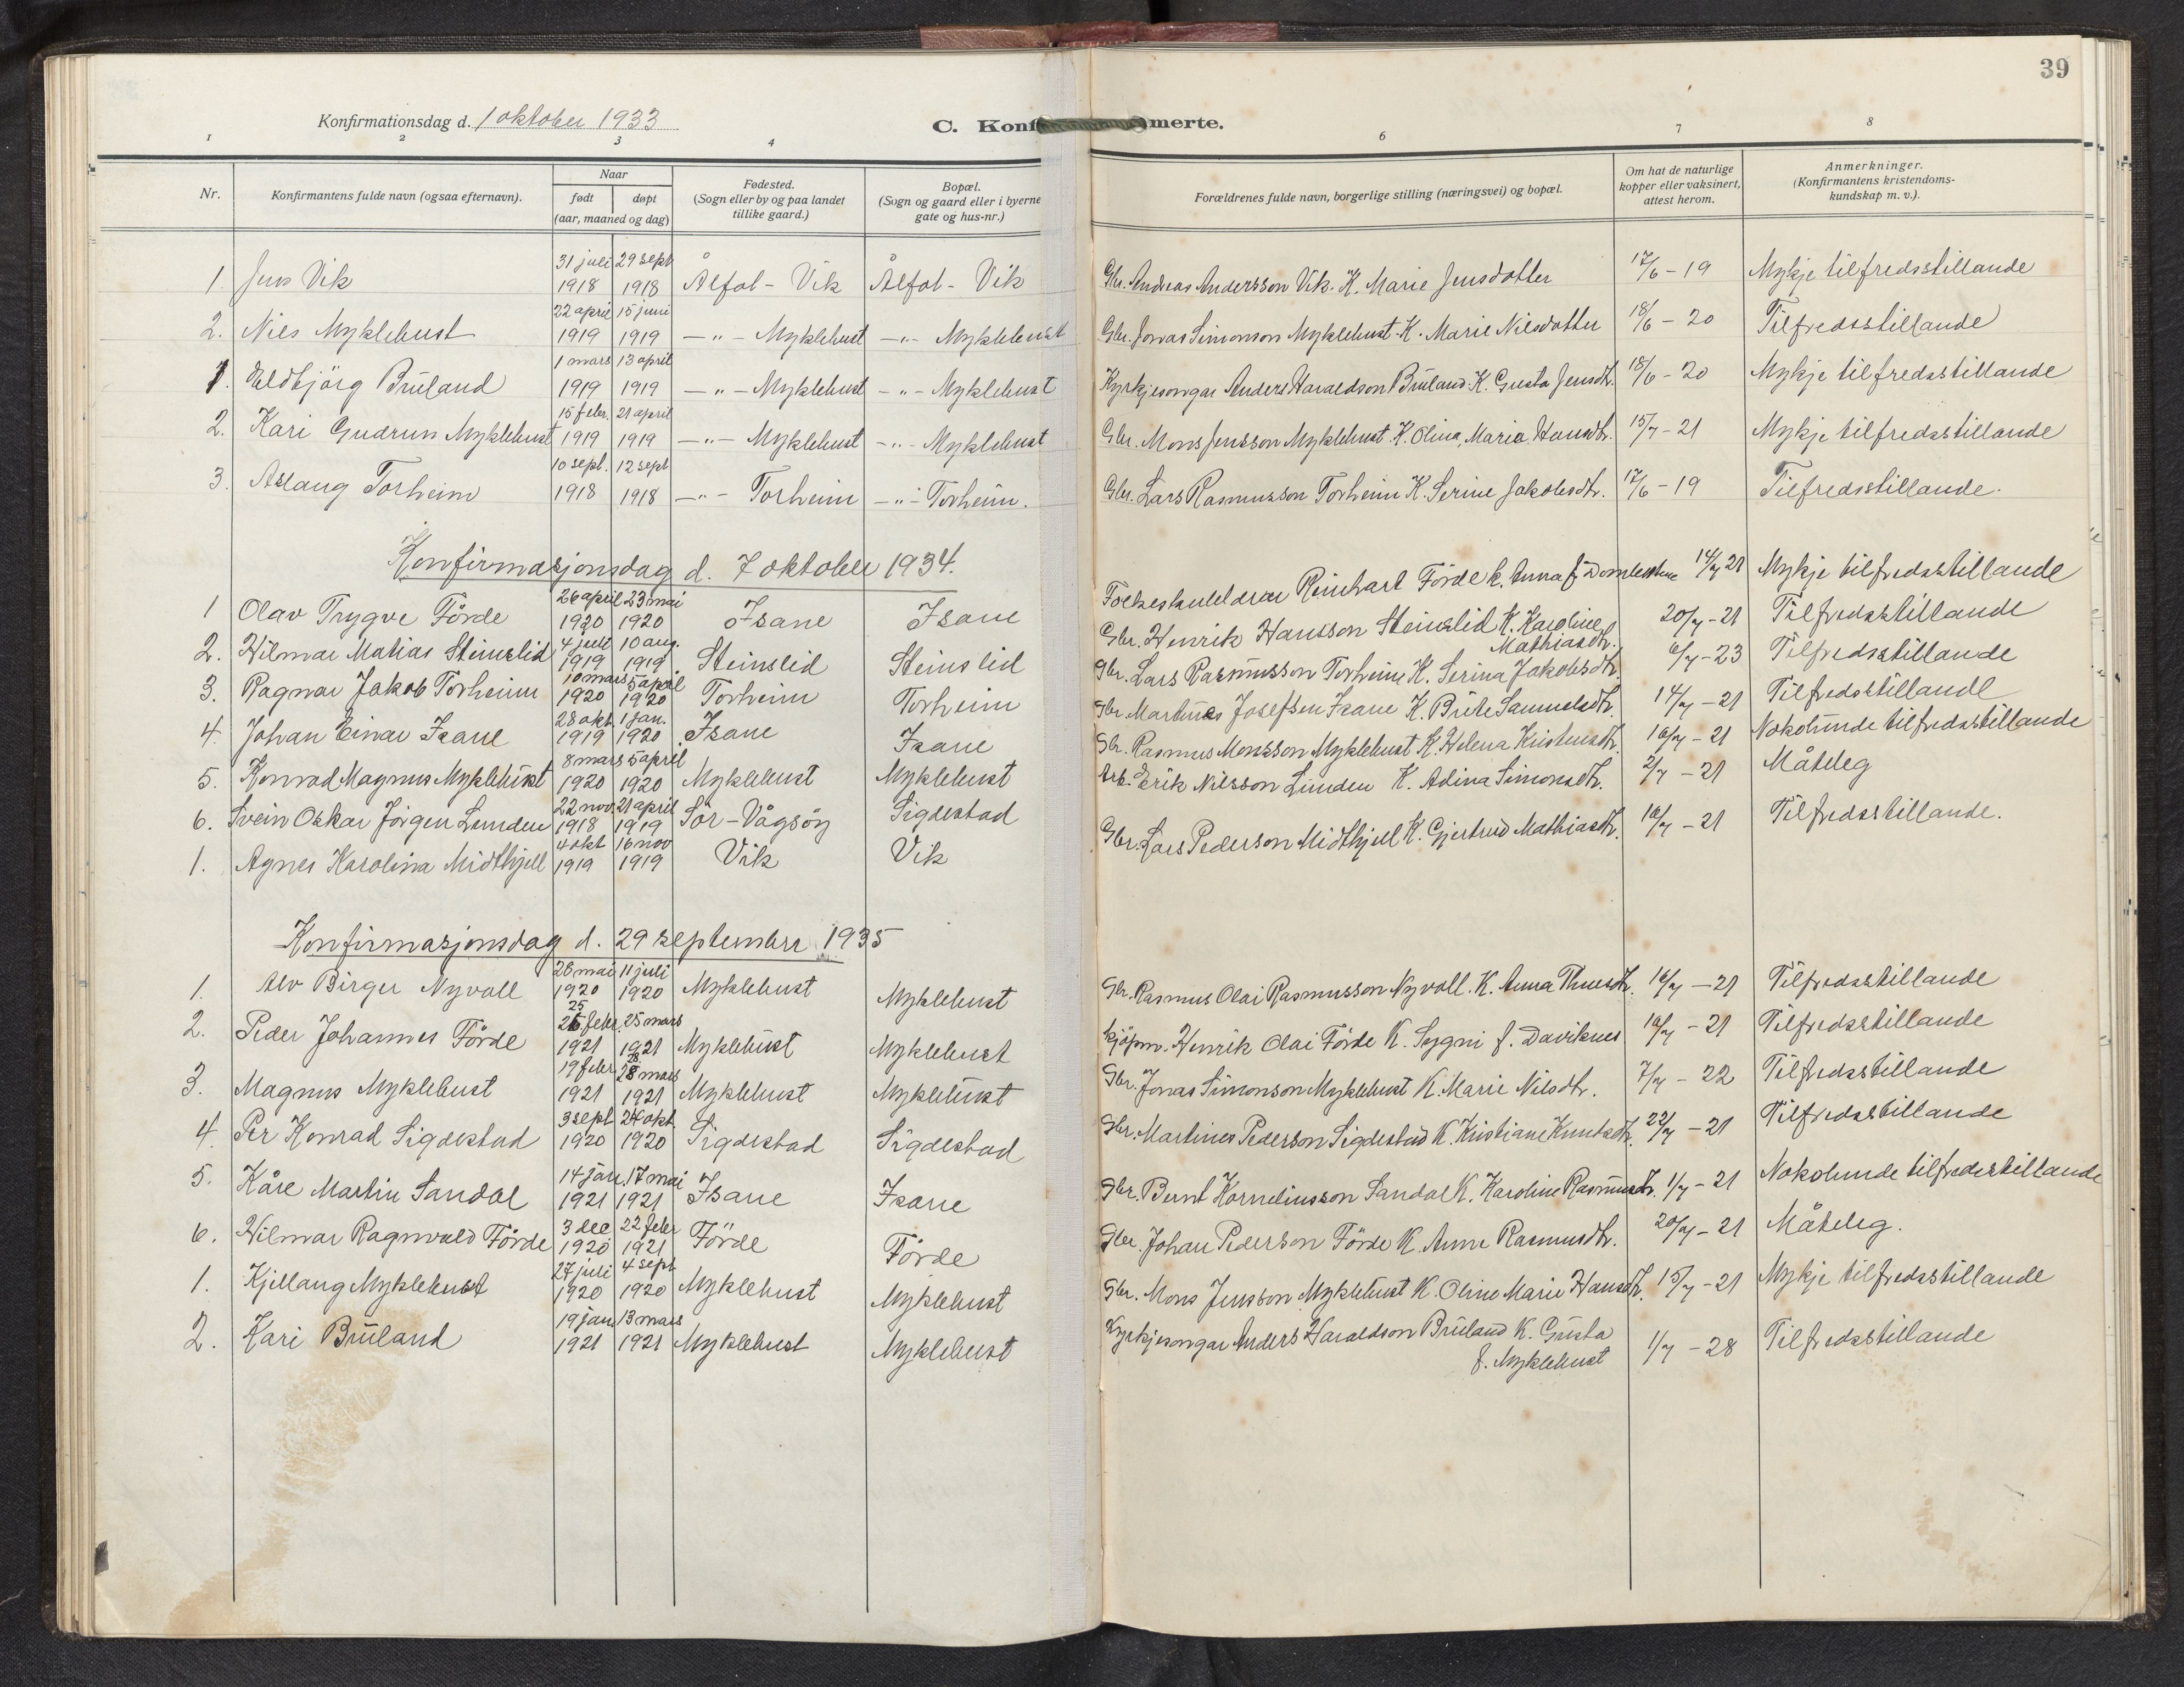 39
Konfirmationsdag d. 1 oktober 1933
C. Konf merte.
1 2 3 4 6 7 8
Nr. Konfirmantens fulde navn (ogsaa efternavn). Naar født døpt (aar, maaned og dag) Fødested. (Sogn eller by og paa landet tillike gaard.) Bopæl. (Sogn og gaard eller i byerne gate og hus-nr.) Forældrenes fulde navn, borgerlige stilling (næringsvei) og bopæl. Om hat de naturlige kopper eller vaksinert, attest herom. Anmerkninger. (Konfirmantens kristendoms-kundskap m. v.).
1. Jens Vik 31 juli 1918 29 sept 1918 Ålfot - Vik Ålfot - Vik Gbr. Andreas Andersson Vik. K. Marie Jensdotter 17/6 - 19 Mykje tilfredsstillande
2. Nils Myklebust 22 april 1919 15 juni 1919 - " - Myklebust - " - Myklebust Gbr. Jonas Simonson Myklebust. K. Marie Nilsdotter 18/6 - 20 Tilfredsstillande
1. Eldbjörg Bruland 1 mars 1919 13 april 1919 - " - Myklebust - " - Myklebust Kyrkjesongar Anders Haraldson Bruland. K. Gusta Jensdtr. 18/6 - 20 Mykje tilfredsstillande
2. Kari Gudrun Myklebust 15 febr. 1919 21 april 1919 - " - Myklebust - " - Myklebust Gbr. Mons Jensson Myklebust. K. Olina Maria Hansdtr. 15/7 - 21 Mykje tilfredsstillande
3. Aslaug Torheim 10 sept. 1918 12 sept 1918 - " - Torheim - " - Torheim. Gbr. Lars Rasmusson Torheim K. Serine Jakobsdtr. 17/6 - 19 Tilfredsstillande.
Konfirmasjonsdag d. 7 oktober 1934.
1 Olav Trygve Förde 26 april 1920 23 mai 1920 Isane Isane Reinhart Förde k. Anna f. 14/7 21 Mykje tilfredsstillande
2. Hilmar Matias Steinslid 4 juli 1919 10 aug. 1919 Steinslid Steinslid Gbr. Henrik Hansson Steinslid K. Karoline Mathiasdtr. 20/7 - 21 Tilfredsstillande
3. Ragnar Jakob Torheim 10 mars 1920 5 april 1920 Torheim Torheim Gbr. Lars Rasmusson Torheim K. Serina Jakobsdtr. 6/7 - 23 Tilfredsstillande
4. Johan Einar Isane 28 okt. 1919 1 jan. 1920 Isane Isane Gbr. Martines Josefsen Isane K. Brite Samuelsdtr. 14/7 - 21 Tilfredsstillande
5. Konrad Magnus Myklebust 8 mars 1920 5 april 1920 Myklebust Myklebust Gbr. Rasmus Monsson Myklebust K. Helena Kristensdtr. 16/7 - 21 Nokolunde tilfredsstillande
6. Svein Oskar Jörgen Lunden 22 nov. 1918 21 april 1919 Sör-Vågsöy Sigdestad Arb. Erik Nilsson Lunden K. Adina Simonsdtr. 2/7 - 21 Måteleg
1. Agnes Karolina Midthjell 4 okt 1919 16 nov 1919 Vik Vik Gbr. Lars Pederson Midthjell K. Gjertrud Mathiasdtr. 16/7 - 21 Tilfredsstillande.
Konfirmasjonsdag d. 29 september 1935
1. Alv Birger Nyvoll 28 mai 1920 11 juli 1920 Myklebust Myklebust Gbr. Rasmus Olai Rasmusson Nyvoll. K. Anna Thuesdtr. 16/7 - 21 Tilfredsstillande
2. Peder Johannes Förde 25 febr. 1921 25 mars 1921 Myklebust Myklebust Kjöpm. Henrik Olai Förde K. Sygni f. Daviknes 16/7 - 21 Tilfredsstillande
3. Magnus Myklebust 19 febr 1921 28 mars 1921 Myklebust Myklebust Gbr. Jonas Simonson Myklebust K. Marie Nilsdtr. 7/7 - 22 Tilfredsstillande
4. Per Konrad Sigdestad 3 sept 1920 24 okt. 1920 Sigdestad Sigdestad Gbr. Martines Pederson Sigdestad K. Kristiane Knutsdtr. 22/7 - 21 Tilfredsstillande
5. Kåre Martin Sandal 14 jan. 1921 17 mai 1921 Isane Isane Gbr. Bernt Korneliusson Sandal K. Karoline Rasmusdtr. 1/7 - 21 Nokolunde tilfredsstillande
6. Hilmar Ragnvald Förde 3 dec 1920 22 febr 1921 Förde Förde Gbr. Johan Pederson Förde K. Anne Rasmusdtr. 20/7 - 21 Måteleg.
1. Kjellaug Myklebust 27 juli 1920 4 sept. 1920 Myklebust Myklebust Gbr. Mons Jensson Myklebust K. Oline Marie Hansdtr. 15/7 - 21 Mykje tilfredsstillande
2. Kari Bruland 19 jan. 1921 13 mars 1921 Myklebust Myklebust Kyrkjesongar Anders Haraldson Bruland K. Gusta f. Myklebust 1/7 - 28 Tilfredsstillande